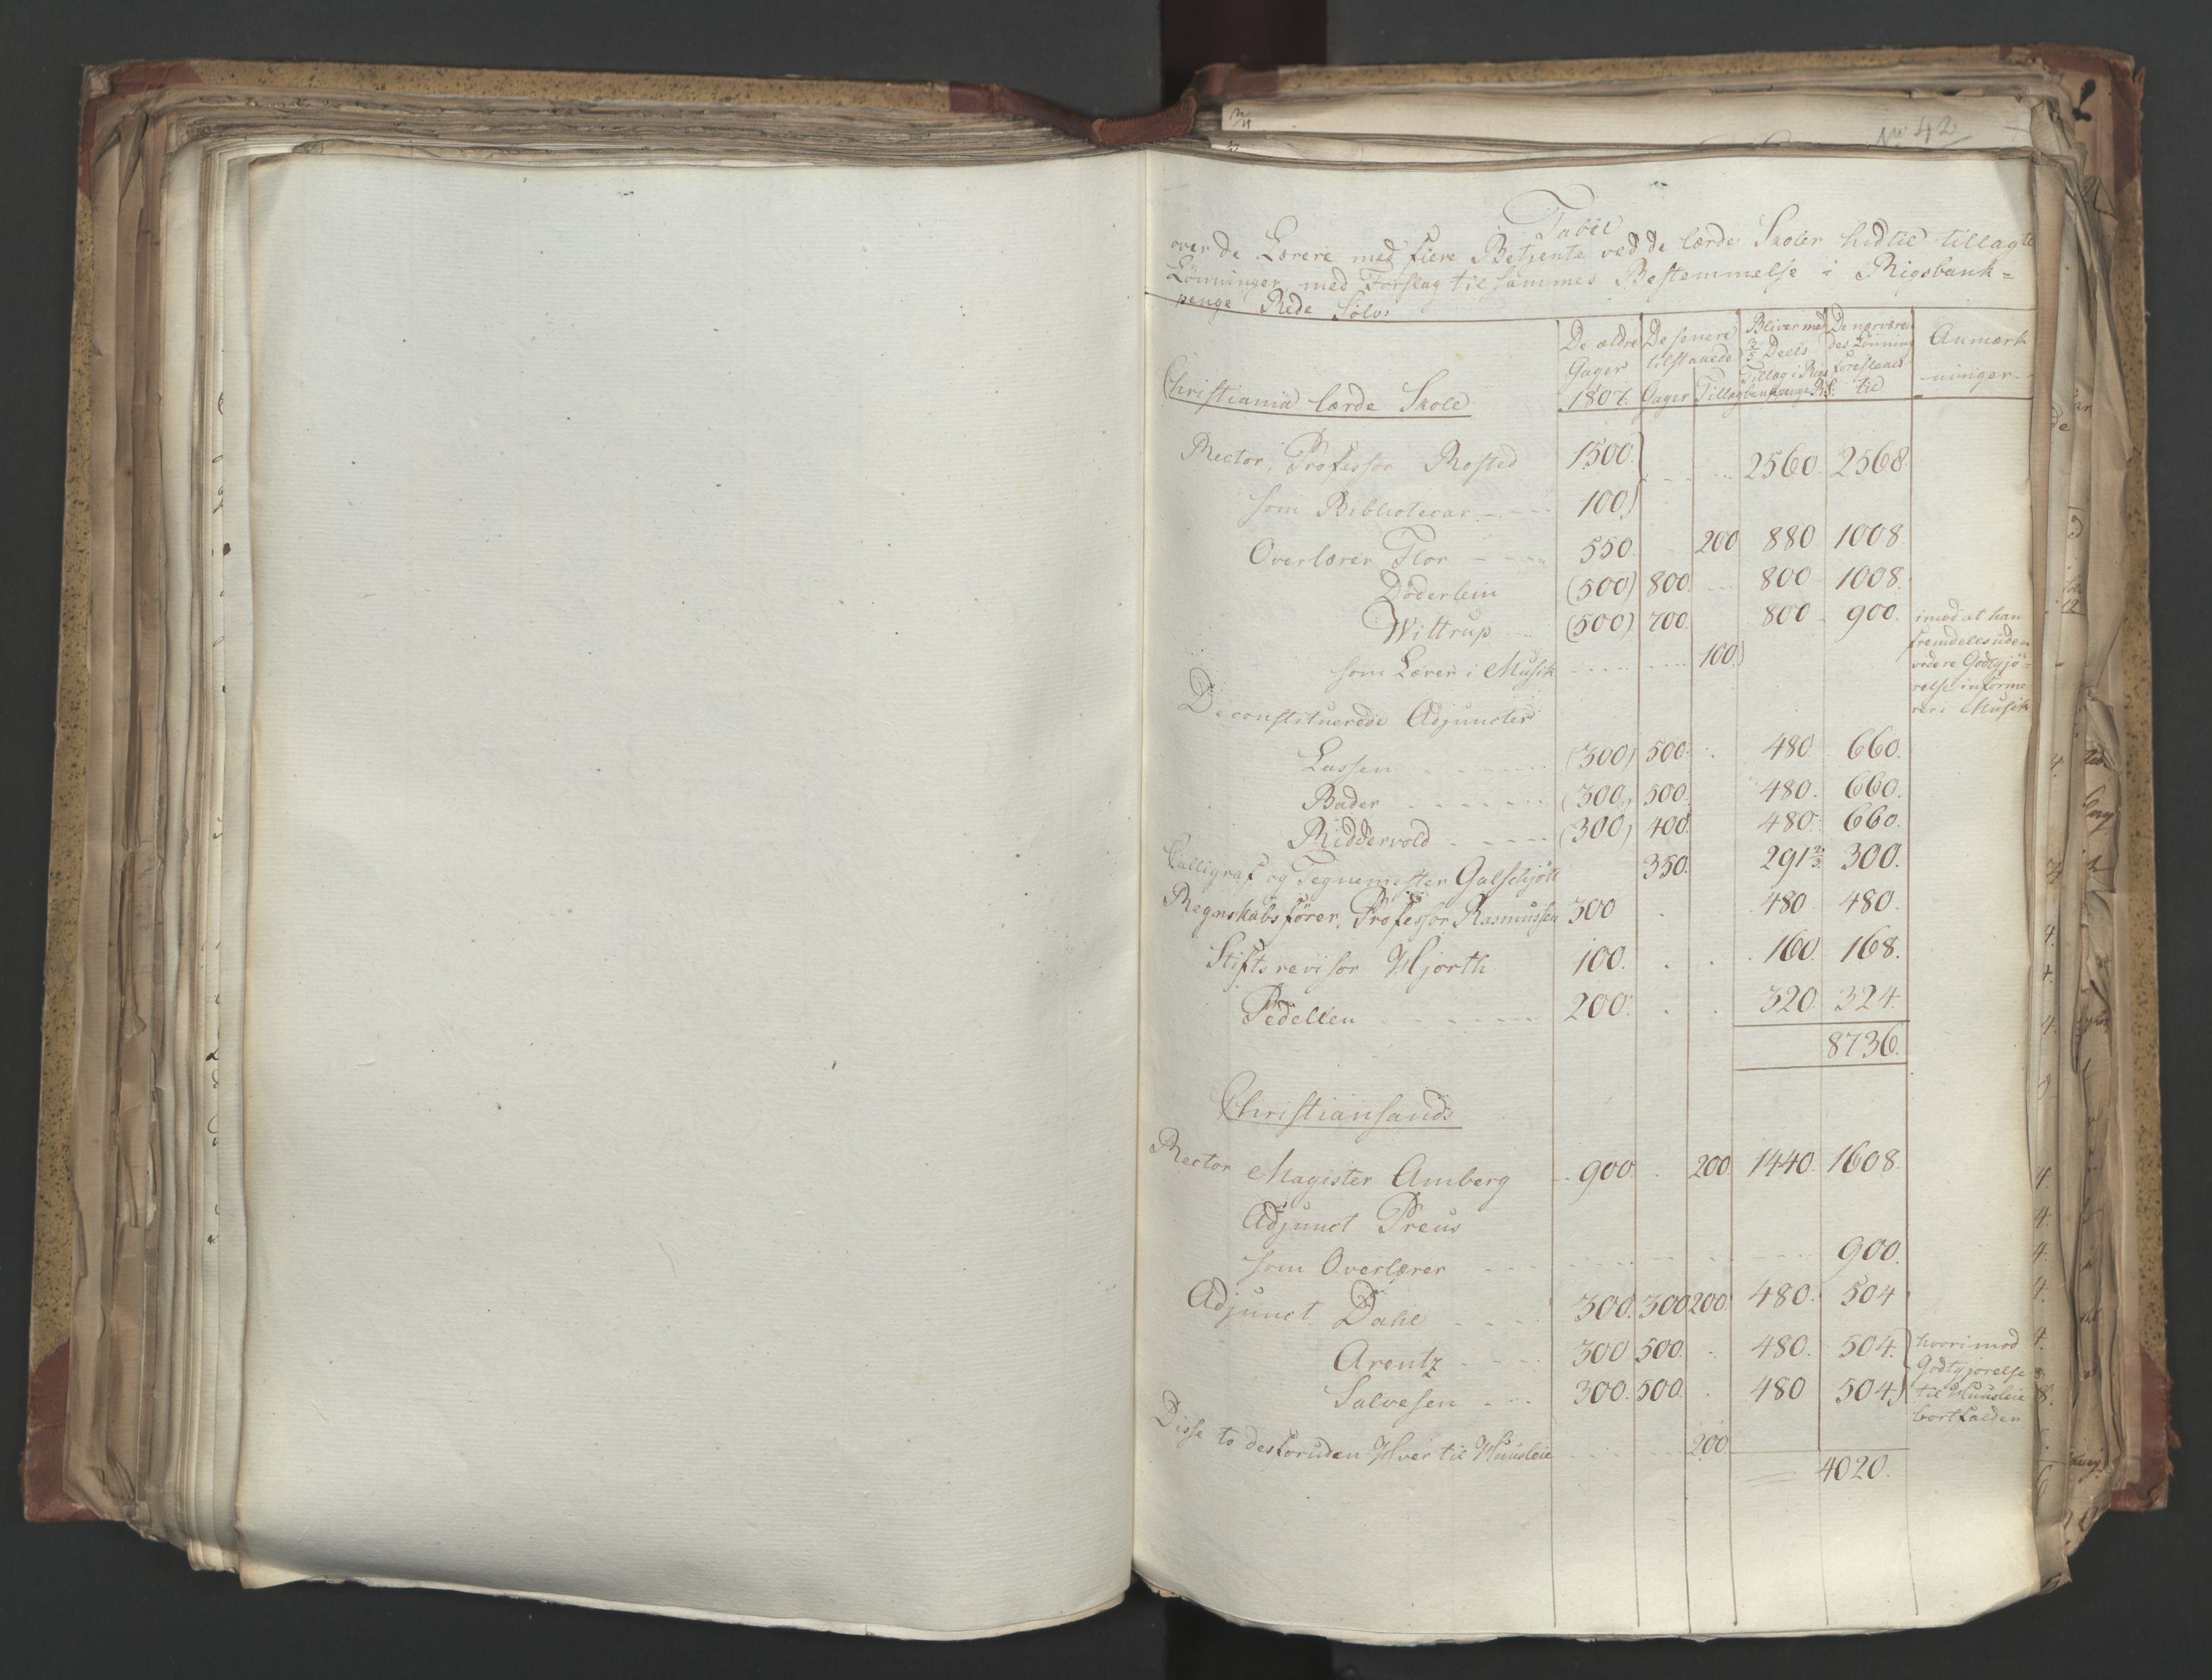 No 42
Tabel
over de Lærere med flere Betjente ved de lærde Skoler hidtil tillagte
Lønninger, med Forslag til sammes Bestemmelse i Rigsbank=
penge Rede Sølv:
De ældre Gager 1807. | De senere tilstaaede Gager | Tillæg | Bliver med 3/5 Deels Tillæg i Rigsbankpenge R.S: | De nærværendes Lønning foreslaaes til | Anmærkninger
Christiania lærde Skole
Rector, Professor Rosted 1500. 2560 2568
som Bibliotecar 100)
Overlærer Flor 550. 200 880 1008.
Døderlein (500) 800. 800 1008.
Wittrup (500) 700. 800 900. imod at han
fremdeles uden
videre Godtgjø=
relse informe
rer i Musik
som Lærer i Musik 100)
De constituerede Adjuncter
Lassen (300) 500. 480 660.
Bader (300) 500. 480. 660.
Riddervold (300) 400. 480. 660.
Calligraf og Tegnemester Galschjøtt 350. 291 2/3 300.
Regnskabsfører, Professor Rasmussen 300 480 480.
Stiftsrevisor Hjorth 100. 160. 168.
Pedellen 200. 320. 324.
8736.
Christiansands
Rector Magister Amberg 900. 200 1440. 1608.
Adjunct Preus
som Overlærer 900.
Adjunct Dahl 300. 300 200. 480. 504
Arentz 300 500. 480. 504. hvorimod
Godtgjørelse
Salvesen 300. 500. 480 504) til Huusleie
bortfalder
Disse to desforuden Hver til Huusleie 200
4020.